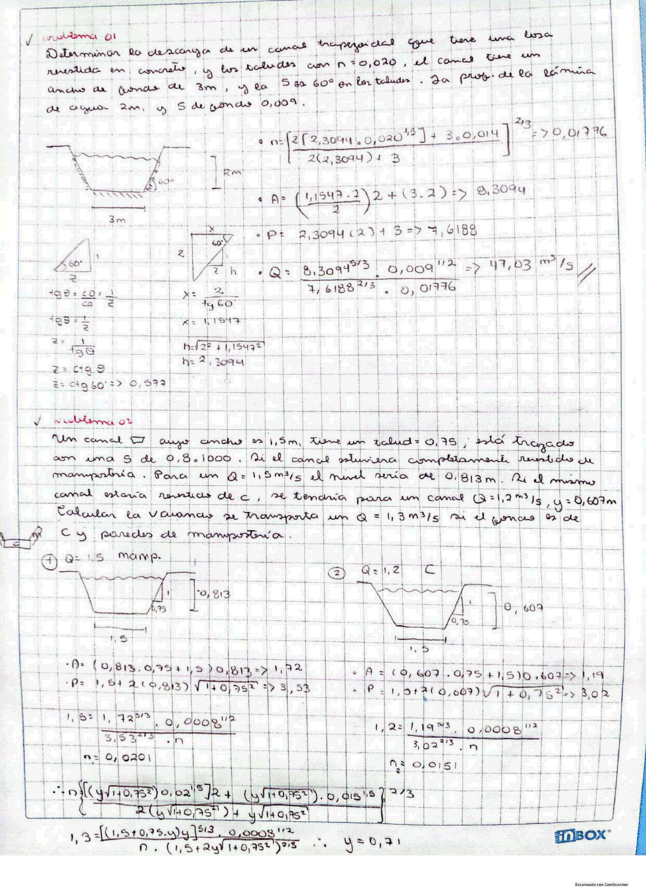 ✓ Problema 01
Determinar la descarga de un canal trapezoidal que tiene una losa
revestida en concreto, y los taludes con n=0,020, el canal tiene un
ancho de fondo de 3m, y la S es 60° en los taludes. La prof. de la lámina
de agua 2m, y S de fondo 0,009.
• n=[2[2,3094 . 0,020^1,5] + 3.0,014 / 2(2,3094)+ 3]^2/3 => 0,01776
2m
60°
3m
• A= (1,1547 . 2 / 2) 2 + (3.2) => 8,3094
• P= 2,3094(2) + 3 => 7,6188
• Q= 8,3094^5/3 . 0,009^1/2 / 7,6188^2/3 . 0,01776 => 47,03 m³/s
60°
1
z
x
60°
2
2
h
tgθ = CO/CA = 1/z
tgθ = 1/z
z= 1/tgθ
z= ctg.θ
z= ctg60° => 0,577
x= 2/tg60
x= 1,1547
h=√2² + 1,1547²
h= 2,3094
✓ Problema 02
Un canal cuyo ancho es 1,5m, tiene un talud= 0,75, está trazado
con una S de 0.8.1000. Si el canal estuviera completamente revestido de
mampostería. Para un Q= 1,5m³/s el nivel sería de 0,813m. Si el mismo
canal estaría revestido de C, se tendría para un canal Q=1,2m³/s, y=0,607m
Calcular la se transporta un Q = 1,3m³/s si el fondo es de
C y paredes de mampostería.
m
c
① Q=1,5 mamp.
0,813
1
0,75
1,5
② Q=1,2 C
0,607
1
0,75
1,5
•A= (0,813.0,75+1,5)0,813=> 1,72
•P= 1,5+2(0,813)√1+0,75² => 3,53
1,5= 1,72^5/3 . 0,0008^1/2 / 3,53^2/3 . n
n1= 0,0201
• A= (0,607 . 0,75 + 1,5)0,607=> 1,19
• P= 1,5+2(0,607)√1+0,75² => 3,02
1,2= 1,19^5/3 . 0,0008^1/2 / 3,02^2/3 . n
n2= 0,0151
∴ n{[(y√1+0,75²)0,02^1,5]2 + (y√1+0,75²).0,015^1,5 / 2(y√1+0,75²)+ y√1+0,75²}^2/3
1,3=[(1,5+0,75.y)y]^5/3 . 0,0008^1/2 / n . (1,5+2y√1+0,75²)^2/3 ∴ y=0,71
inBOX
Escaneado con CamScanner